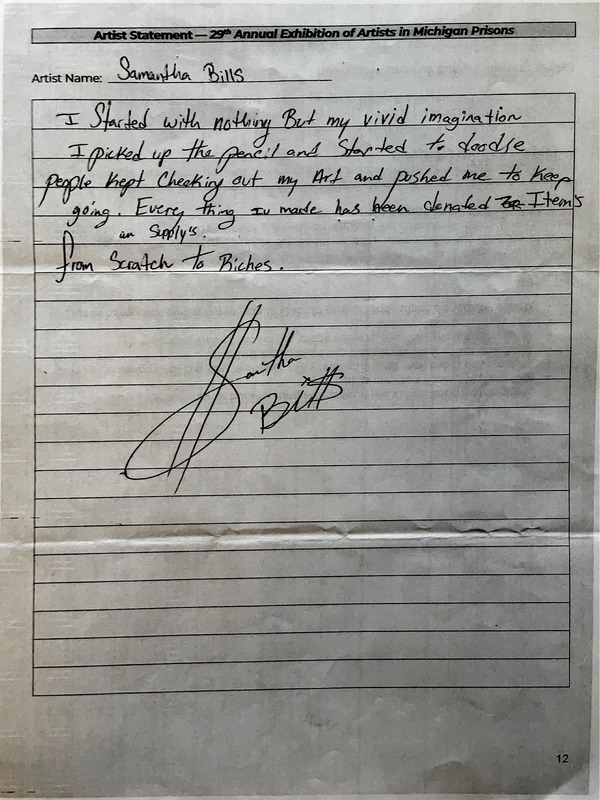 Artist Statement — 29th Annual Exhibition of Artists in Michigan Prisons
Artist Name: Samantha Bills
I Started with nothing But my vivid imagination
I picked up the pencil and Started to doodle
people Kept Checking out my Art and pushed me to Keep
going. Every thing Iv made has been donated Item's
an Supply's.
from Scratch to Riches.
Samtha
Bills
12